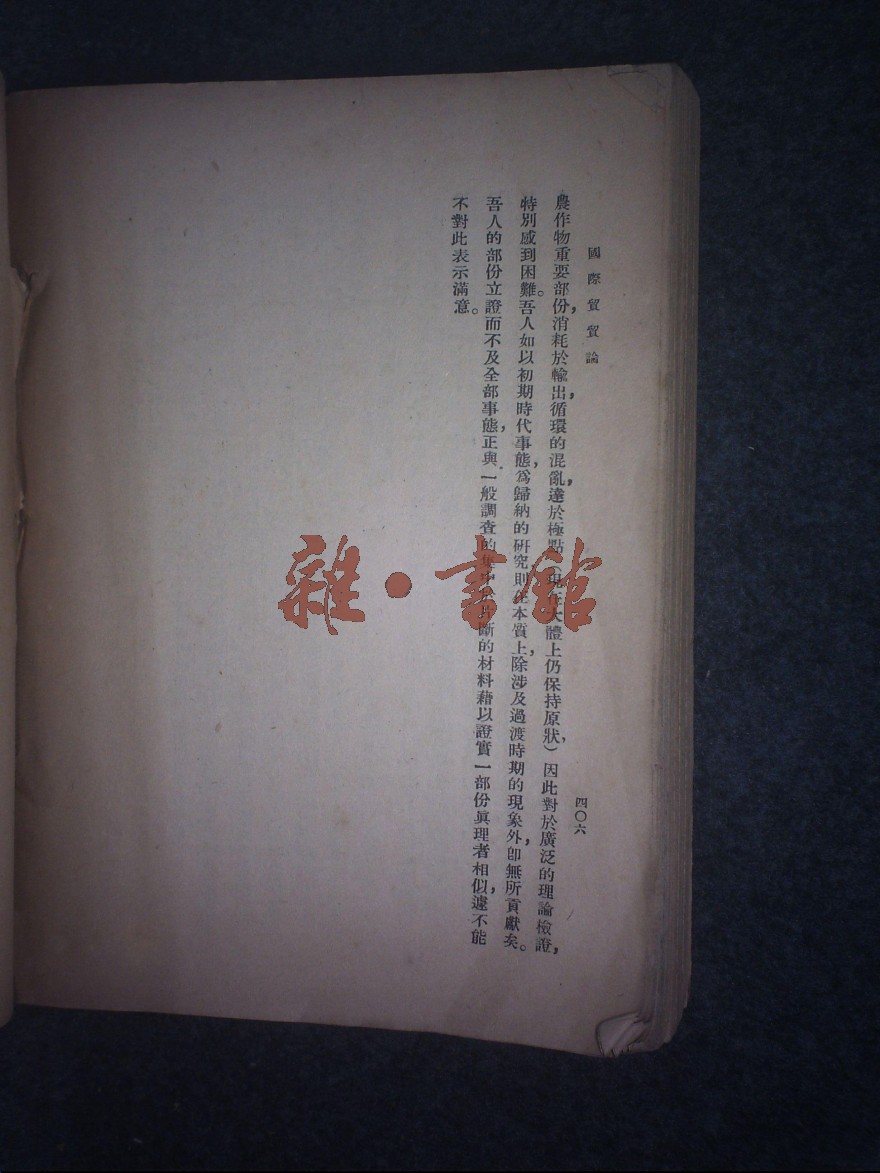 國際貿貿論
四〇六
農作物重要部份，消耗於輸出，循環的混亂，達於極點（現在大體上仍保持原狀，）因此對於廣泛的理論檢證，
特別感到困難。吾人如以初期時代事態，爲歸納的研究則在本質上，除涉及過渡時期的現象外，卽無所貢獻矣。
吾人的部份立證而不及全部事態，正與一般調查的集中 斷的材料藉以證實一部份眞理者相似，遽不能
不對此表示滿意。
雜·書館